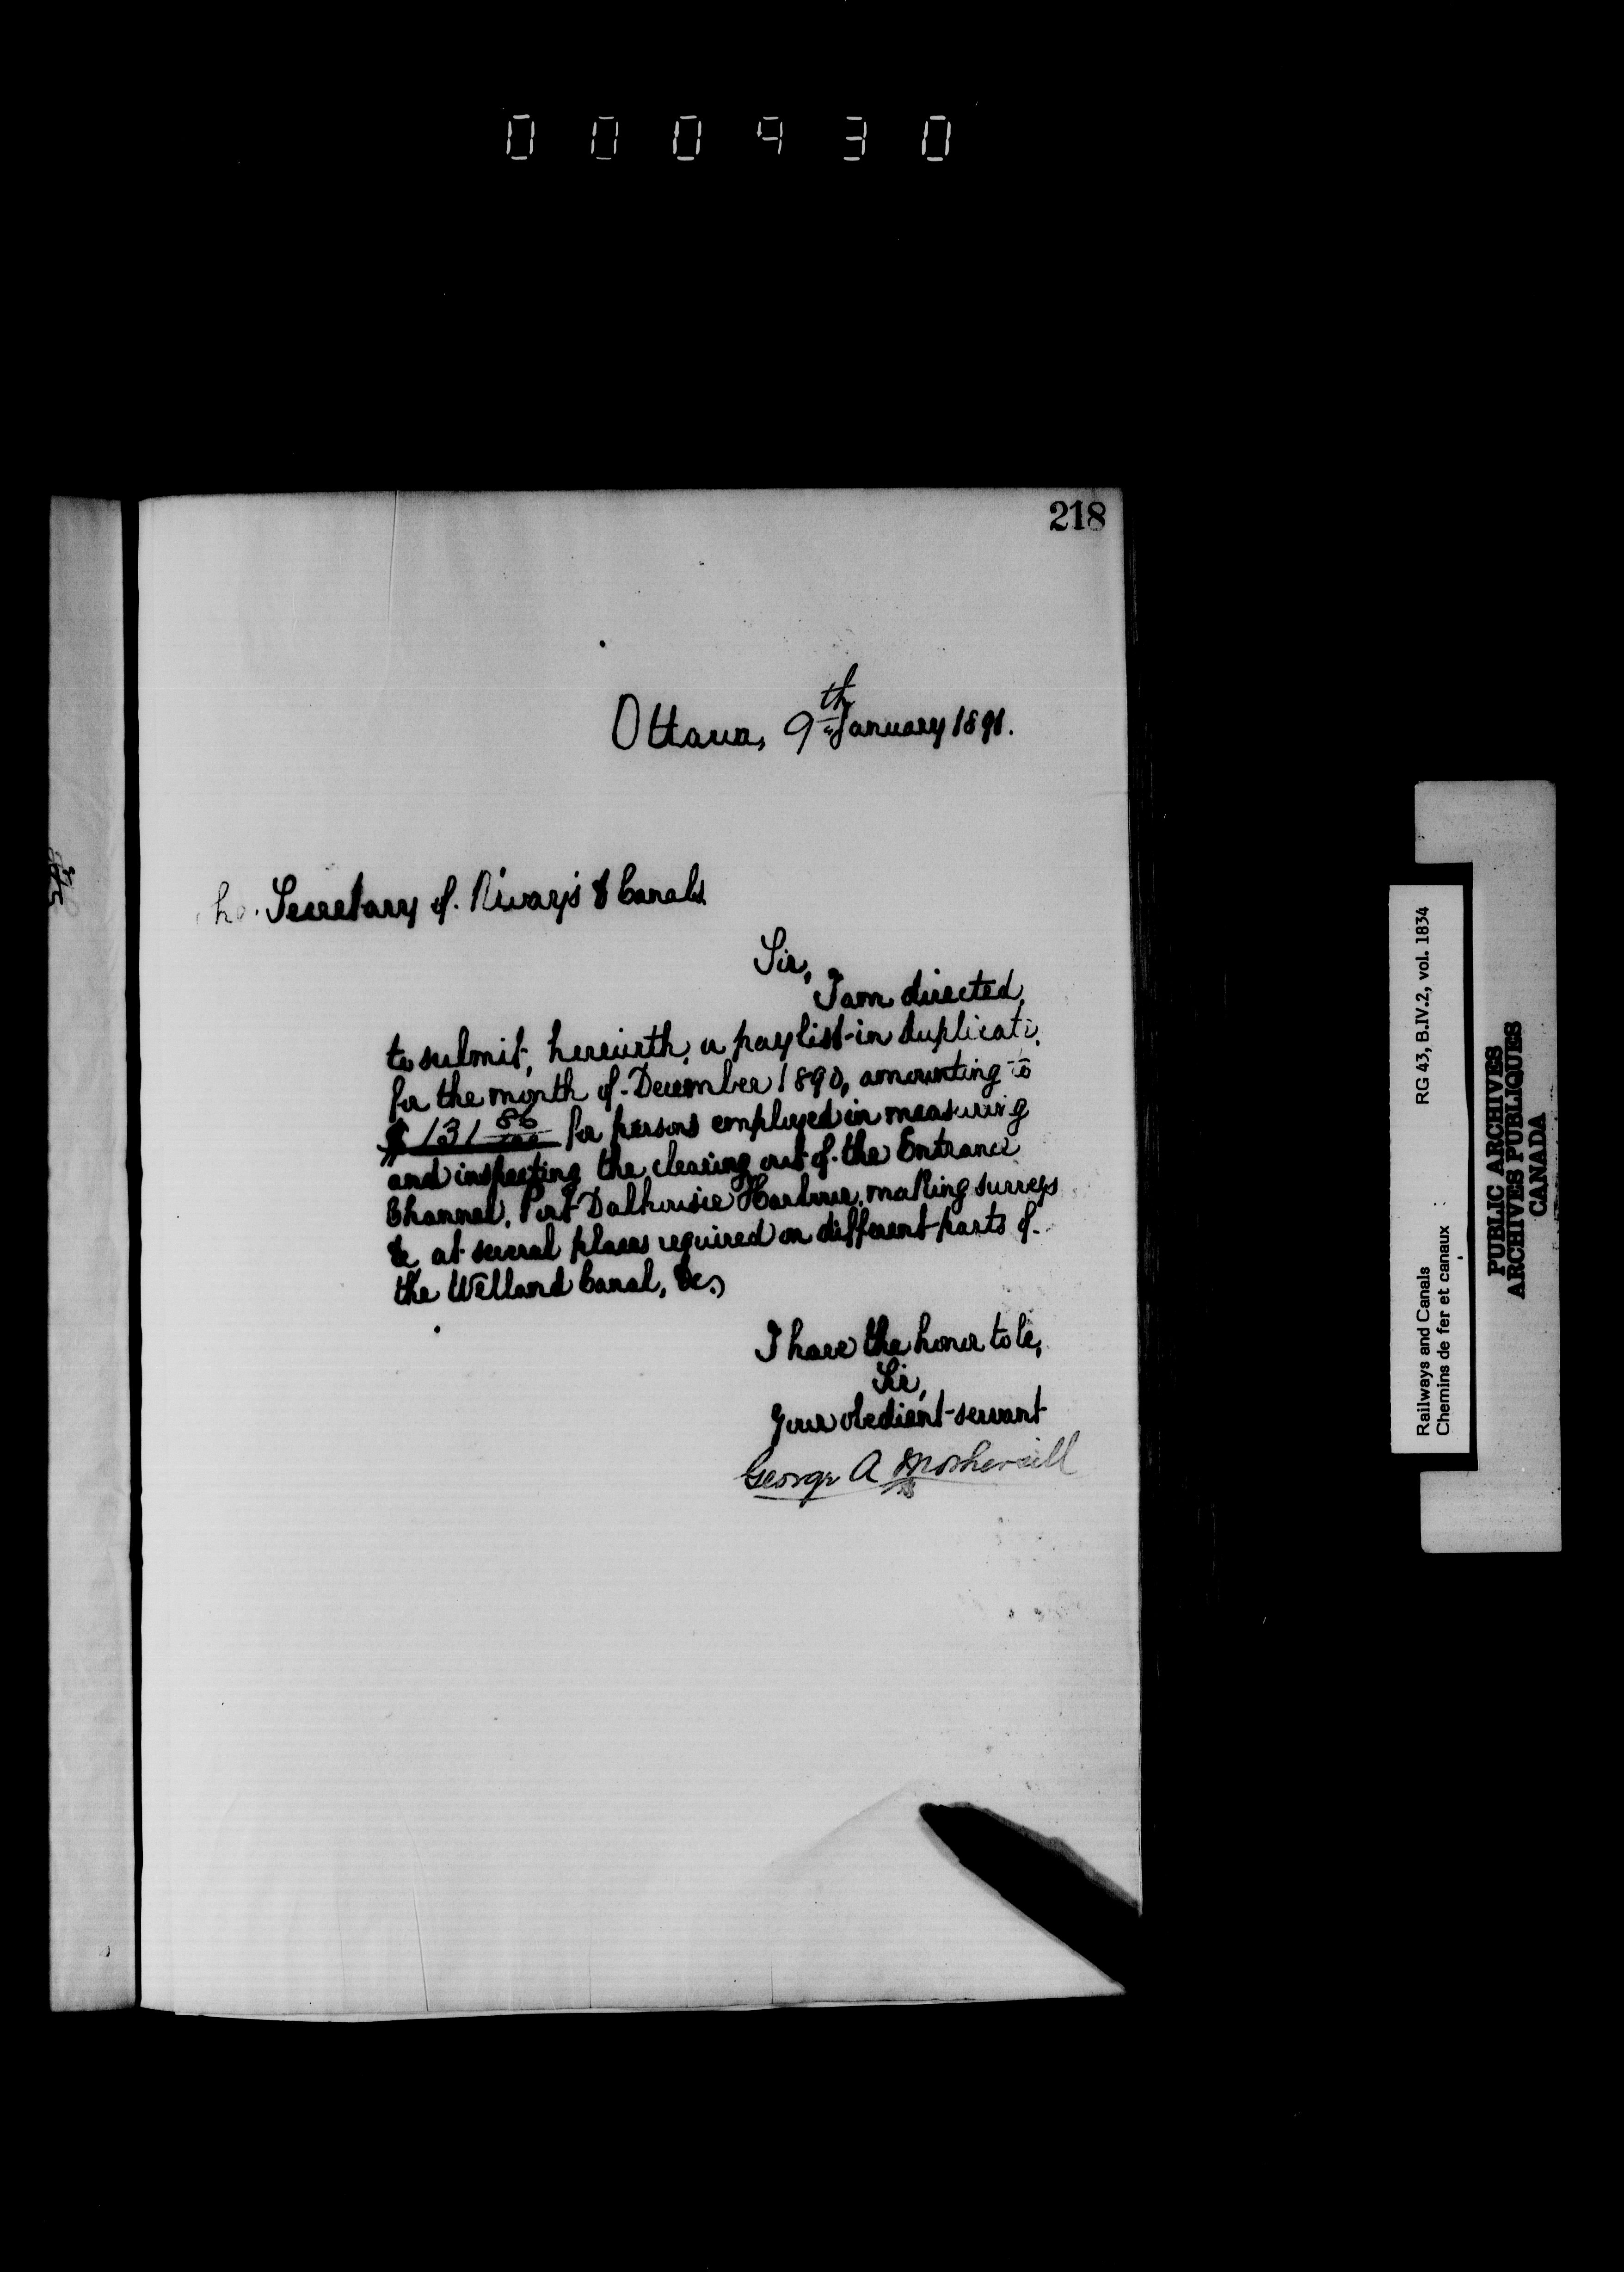 000430
218
Ottawa, 9th January 1891.
he Secretary of Riways & Canals
Sir,
I am directed,
to submit, herewith, a paylist in duplicate
for the month of December 1890, amounting to
$131 86/100 for persons employed in measuring
and inspecting the clearing out of the Entrance
Channel, Port Dalhousie Harbour, making surveys
&c, at several places required on different parts of
the Welland Canal, &c.,
I have the honor to be,
Sir,
Your obedient servant
George A Mothersill
Railways and Canals RG 43, B.IV.2, vol. 1834
Chemins de fer et canaux :
PUBLIC ARCHIVES
ARCHIVES PUBLIQUES
CANADA